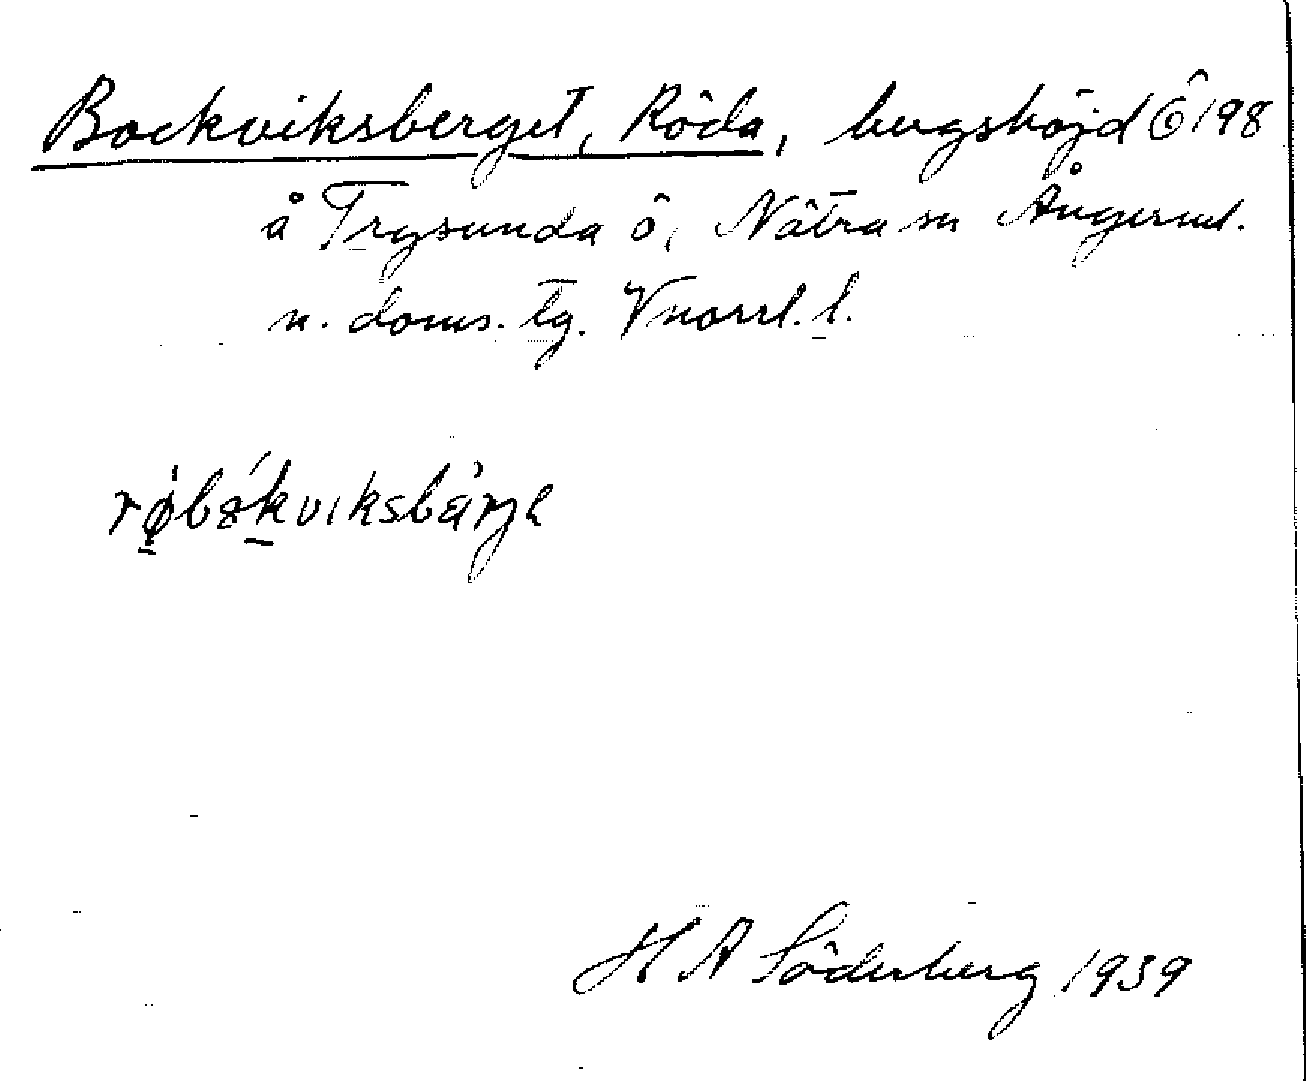 Bockviksberget, Röda, bergshöjd Ö 198
å Trysunda ö, Nätra sn Ångerml.
n. doms. tg. Vnorrl. l.
H A Söderberg 1939